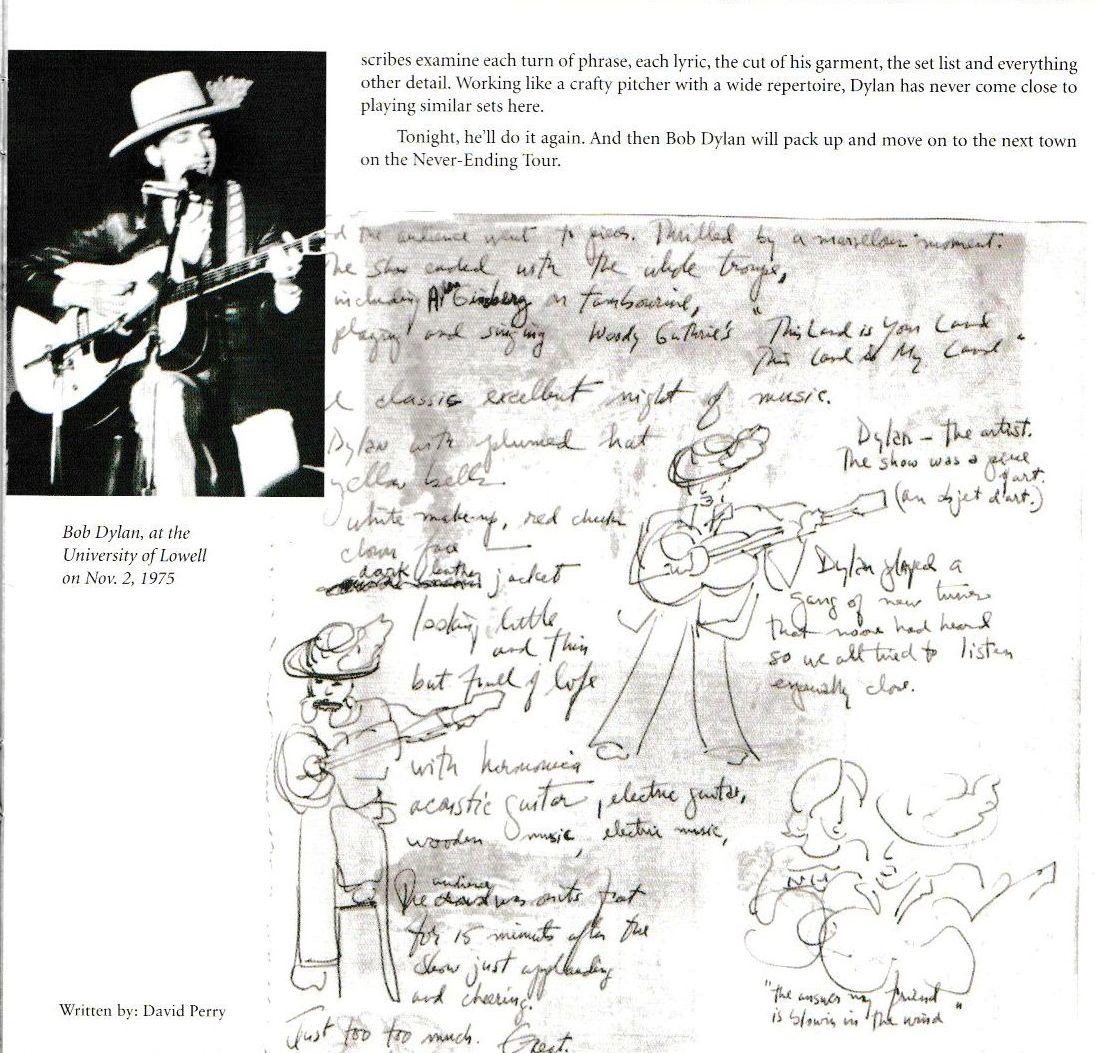 scribes examine each turn of phrase, each lyric, the cut of his garment, the set list and everything
other detail. Working like a crafty pitcher with a wide repertoire, Dylan has never come close to
playing similar sets here.
Tonight, he'll do it again. And then Bob Dylan will pack up and move on to the next town
on the Never-Ending Tour.
Bob Dylan, at the
University of Lowell
on Nov. 2, 1975
the audience went to pieces. Thrilled by a marvellous moment.
The show ended with the whole troupe,
including Allen Ginsberg on tambourine,
playing and singing Woody Guthrie's "This Land is Your Land
This Land is My Land".
classic excellent night of music.
Dylan with plumed hat
yellow bells.
white make-up, red cheeks
clown face —
dark leather jacket
looking little
and thin
but full of life
with harmonica
acoustic guitar, electric guitar,
wooden music, electric music,
The audience was on its feet
for 15 minutes after the
show just applauding
and cheering!
Just too too much. Great.
Dylan – the artist.
The show was a piece
of art.
(an objet d'art.)
Dylan played a
gang of new tunes
that noone had heard
so we all tried to listen
especially close.
"the answer my friend
is blowin in the wind"
Written by: David Perry